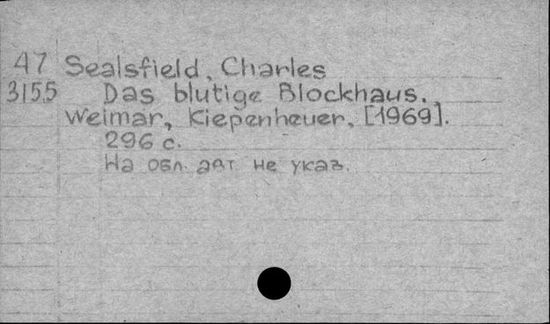 47 Sealsfield, Charles
3155 Das blutige Blockhaus.
Weimar, Kiepenheuer, [1969].
296 с.
На обл. авт. не указ.